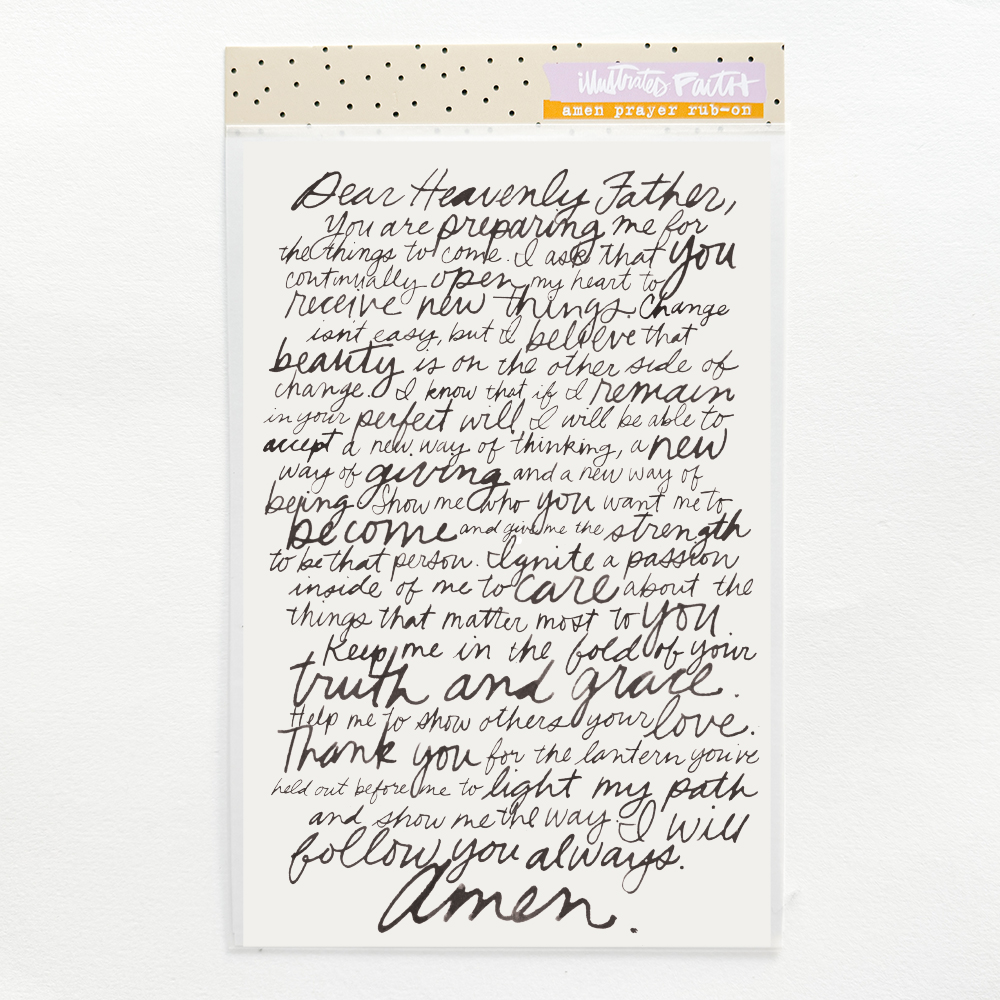 illustrated FAITH
amen prayer rub-on
Dear Heavenly Father,
You are preparing me for
the things to come. I ask that you
continually open my heart to
receive new things. Change
isn't easy, but I believe that
beauty is on the other side of
change. I know that if I remain
in your perfect will I will be able to
accept a new way of thinking, a new
way of giving and a new way of
being. Show me who you want me to
become and give me the strength
to be that person. Ignite a passion
inside of me to care about the
things that matter most to you.
Keep me in the fold of your
truth and grace.
Help me to show others your love.
Thank you for the lantern you've
held out before me to light my path
and show me the way. I will
follow you always.
Amen.